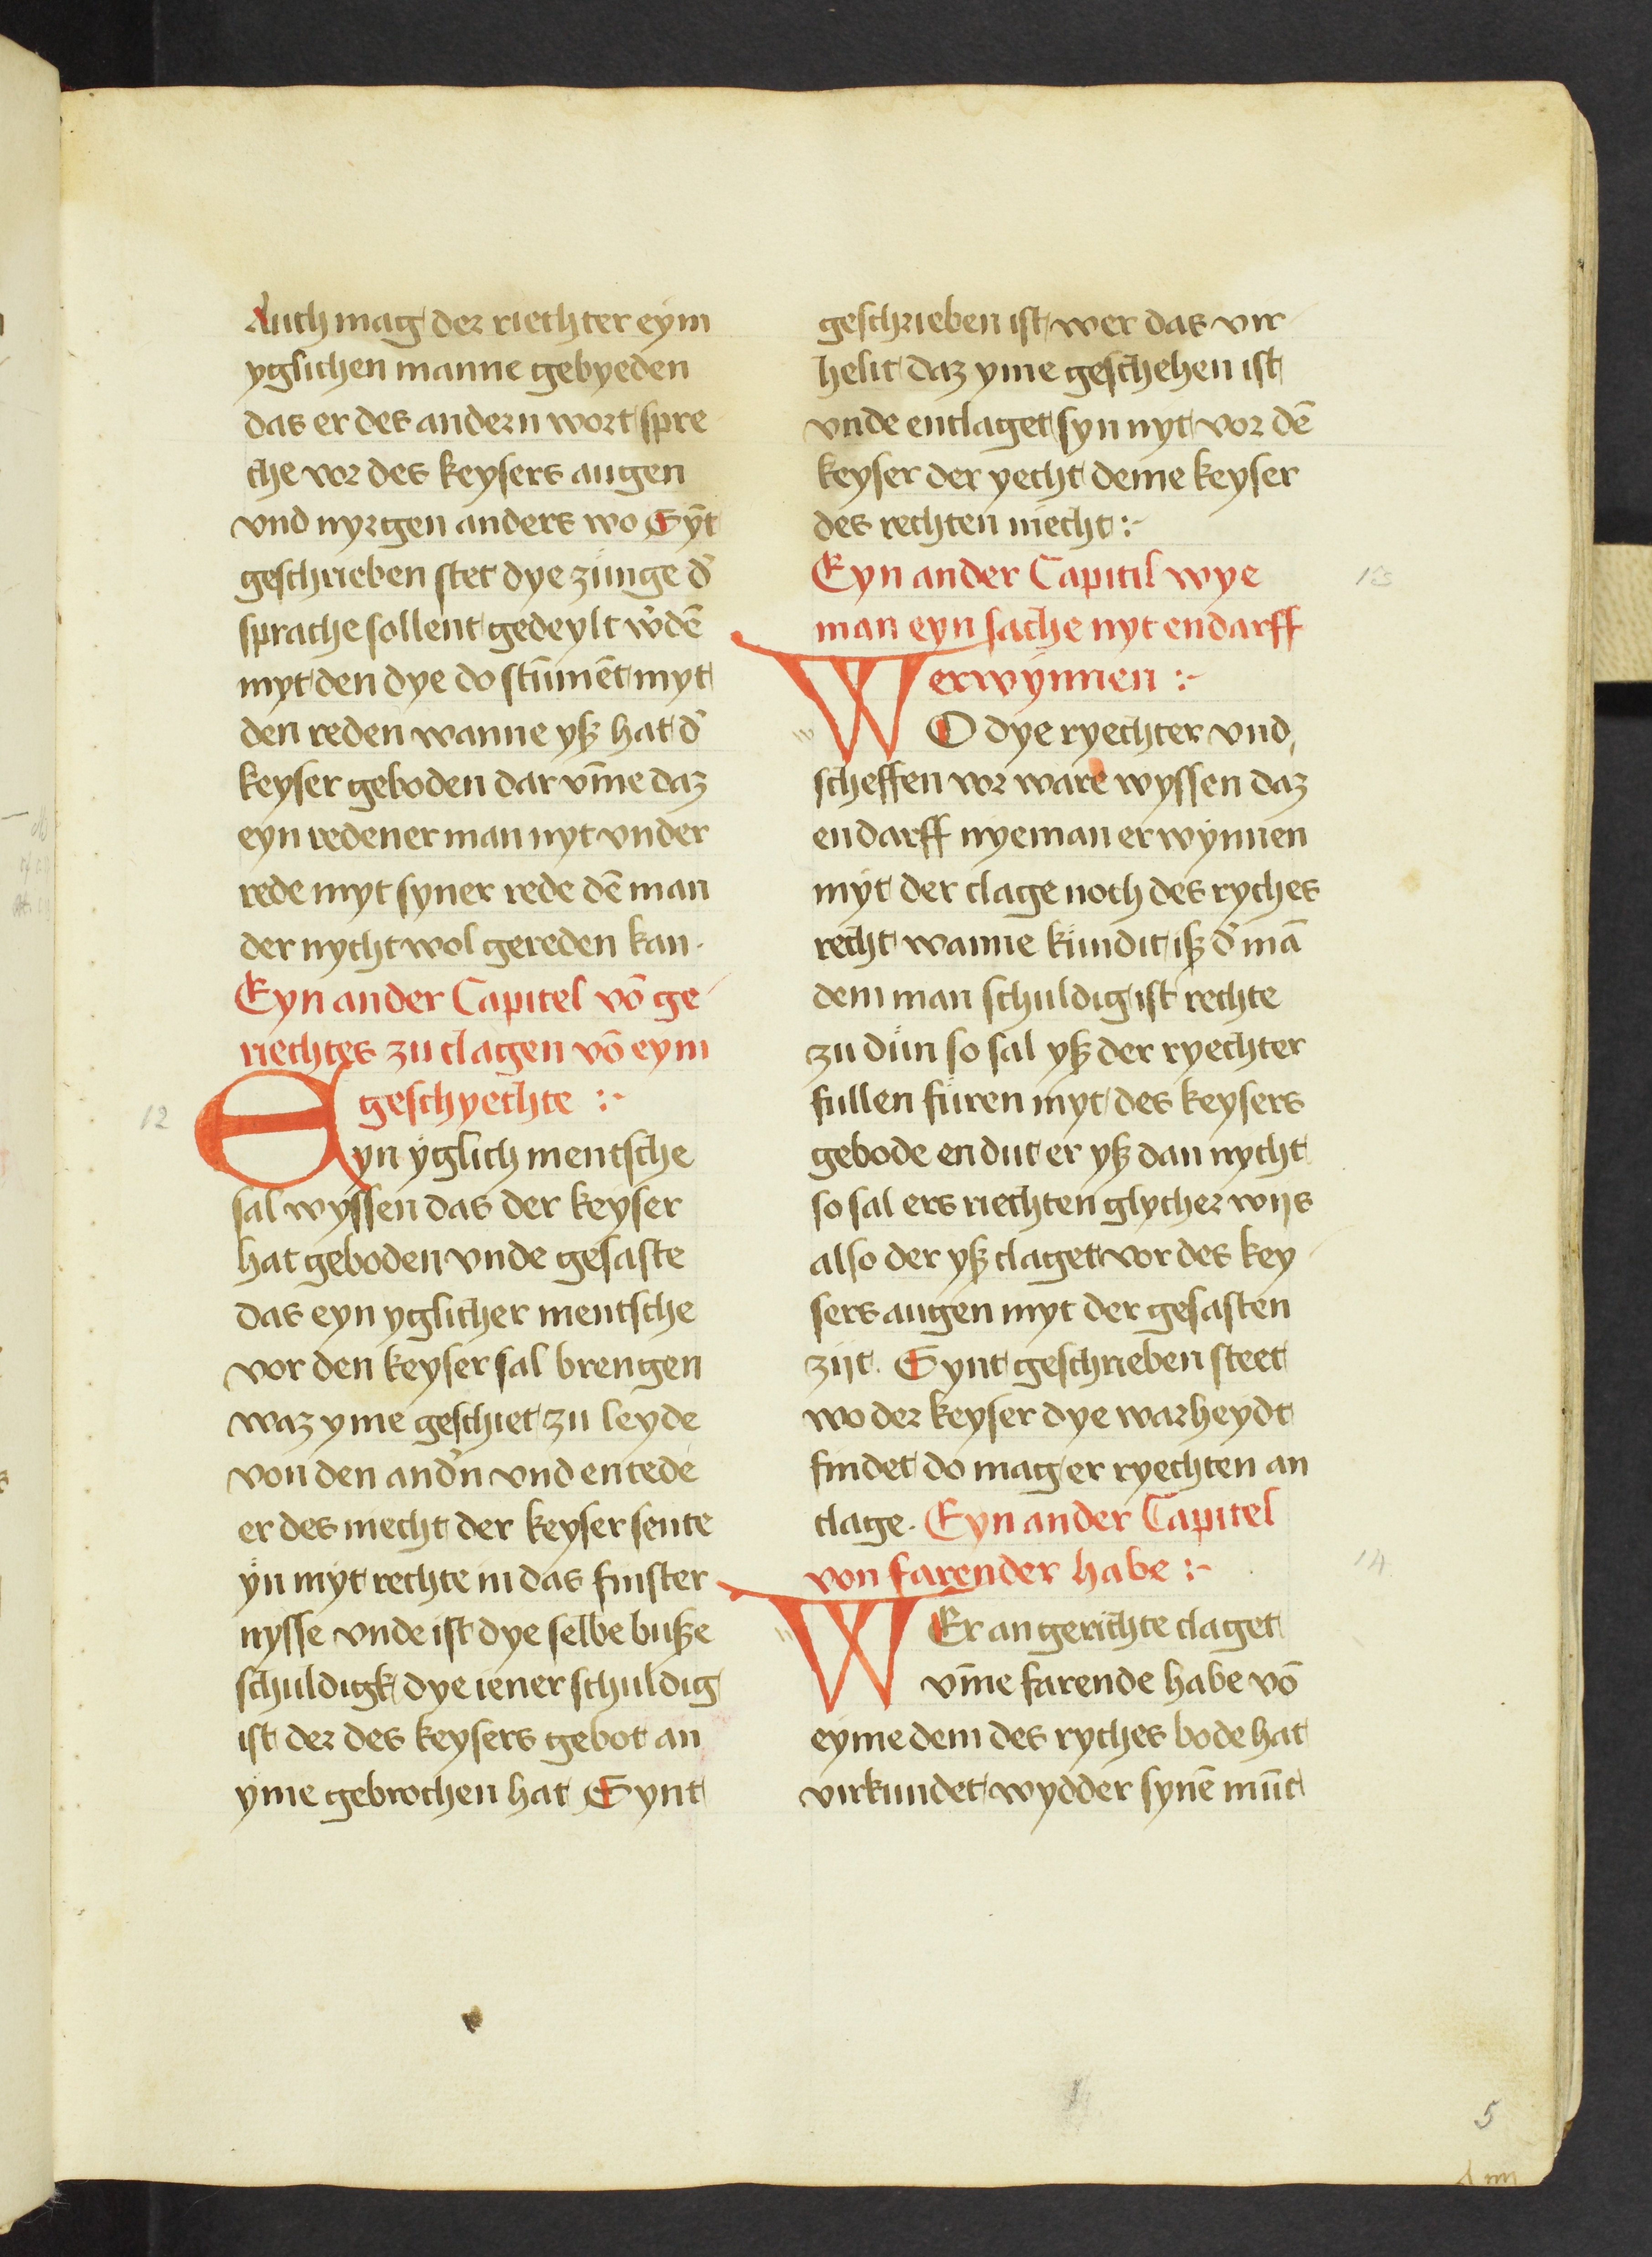 Auch mag der riechter eym
yglichen manne gebyeden
das er des andern wort spre
che vor des keysers augen
vnd nyrgen anders wo Synt
geschrieben stet dye zünge d̾
sprache sollent gedeylt w̾dē
myt den dye do stūmēt myt
den reden wanne yß hat d̾
keyser geboden dar vm̄e daz
eyn redener man nyt vnder
rede myt syner rede dē man
der nycht wol gereden kan.
Eyn ander Capitel vō ge
riechtes zu clagen vō eym
geschyechte :-
12
Eyn yglich mentsche
sal wyssen das der keyser
hat geboden vnde gesaste
das eyn yglicher mentsche
vor den keyser sal brengen
waz yme geschiet zu leyde
von den and̾n vnd entede
er des niecht der keyser sente
yn myt rechte in das finster
nysse vnde ist dye selbe buße
schuldigk dye iener schuldig
ist der des keysers gebot an
yme gebrochen hat Synt
geschrieben ist wer das vir
helit daz yme geschehen ist
vnde enclaget syn nyt vor dē
keyser der yecht deme keyser
des rechten niecht :-
Eyn ander Capitil wye
13
man eyn sache nyt endarff
erwynnen :-
WO dye ryechter vnd
scheffen vor ware wyssen daz
endarff nyeman erwynnen
myt der clage noch des ryches
recht wanne kündit iß d̾ mā
dem man schuldig ist rechte
zu dün so sal yß der ryechter
fullen füren myt des keysers
gebode endut er yß dan nycht
so sal ers riechten glycher wijs
also der yß claget vor des key
sers augen myt der gesasten
zijt. Synt geschrieben steet
wo der keyser dye warheydt
findet do mag er ryechten an
clage. Eyn ander Capitel
von farender habe :-
14
WEr an gerichte claget
vm̄e farende habe vō
eyme dem des ryches bode hat
virkundet wydder synē mūt
5